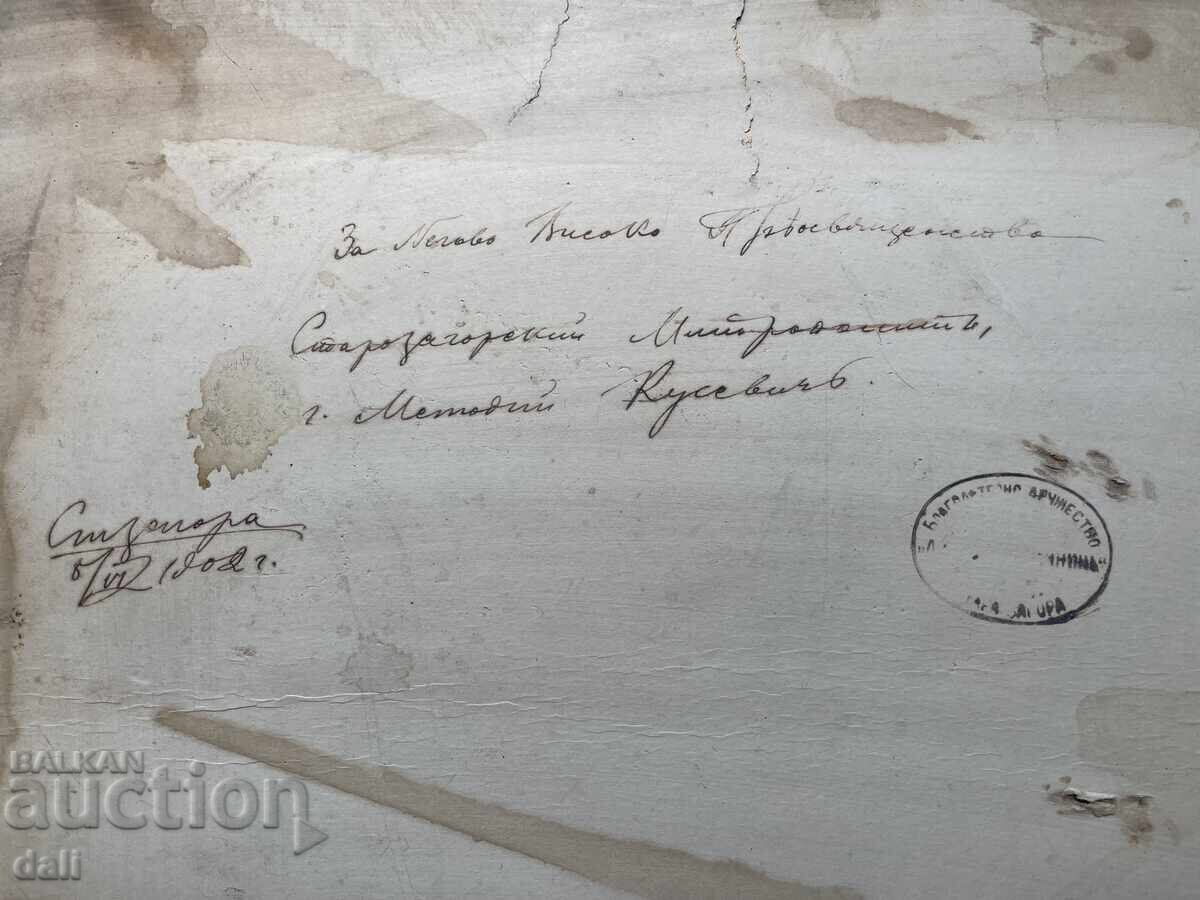 За Негово Високо Прѣосвященство
Старозагорский Митрополитъ,
г. Методий Кусевичъ.
Ст. Загора
8/VI 1902 г.
ДРУЖЕСТВО
ЗАГОРА
BALKAN
auction
dali